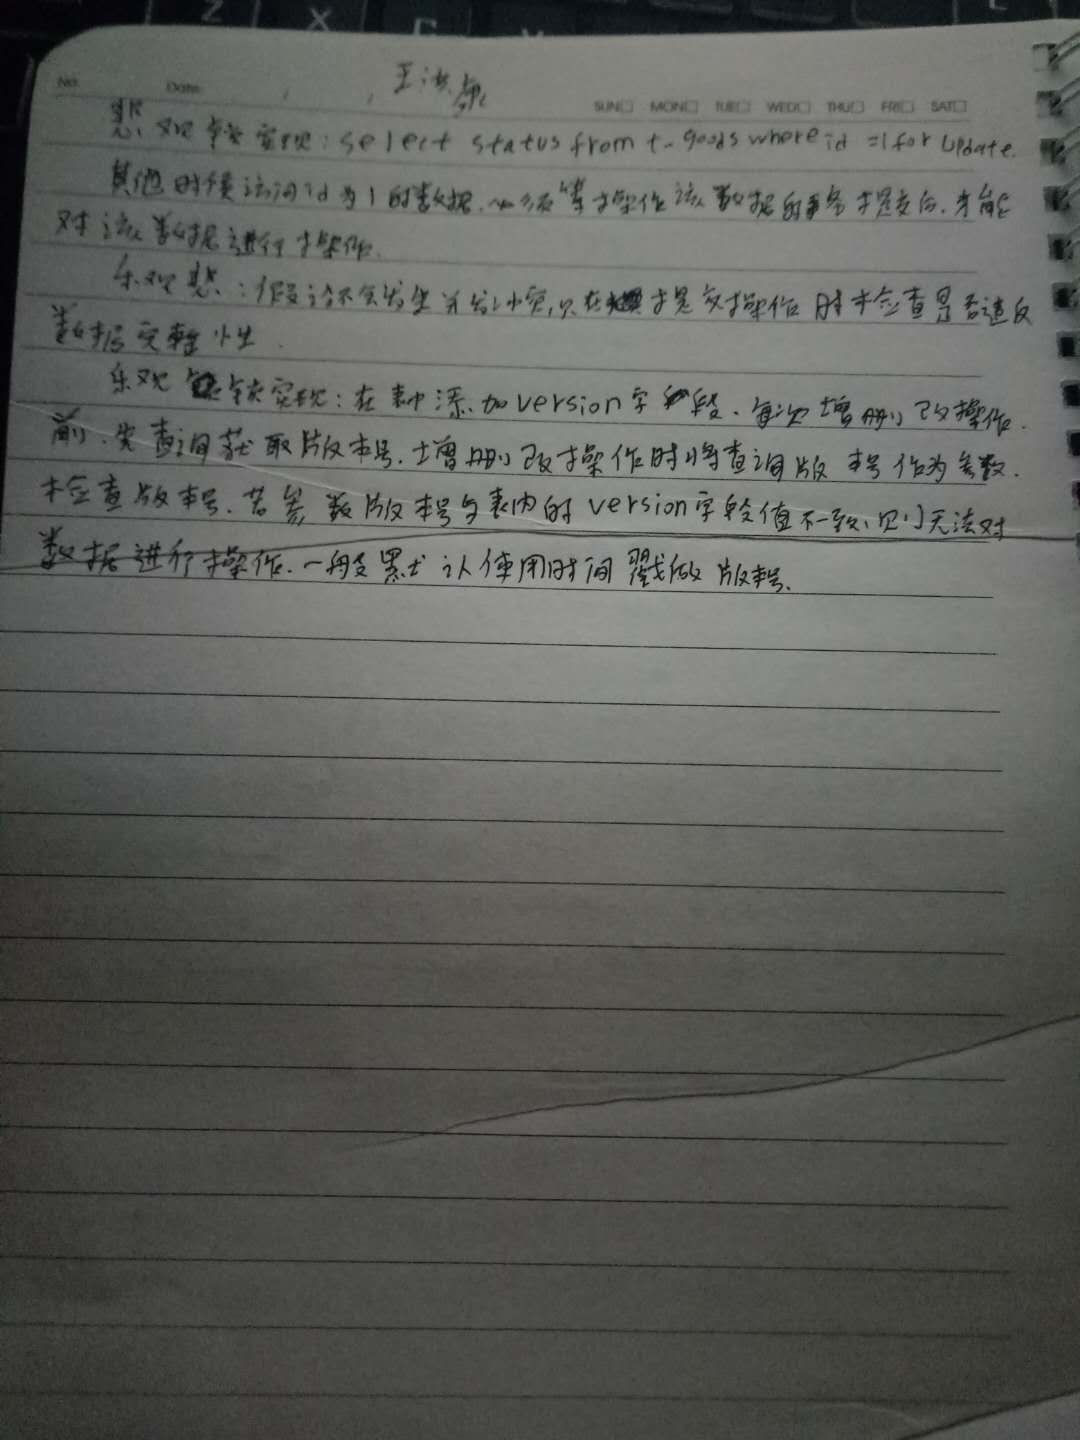 Z X C V
王洪
No. Date. SUN□ MON□ TUE□ WED□ THU□ FRI□ SAT□
悲观锁实现: select status from t_goods where id =1 for update.
其他时候访问id为1的数据,必须等操作该数据的事务提交后,才能
对该数据进行操作.
乐观悲:假设不会发生并发冲突,只在提交操作时检查是否违反
数据完整性.
乐观锁实现:在表中添加version字段.每次增删改操作
前.先查询获取版本号.增删改操作时将查询版本号作为参数.
检查版本号.若参数版本号与表内的version字段值不一致,则无法对
数据进行操作.一般默认使用时间戳做版本号.